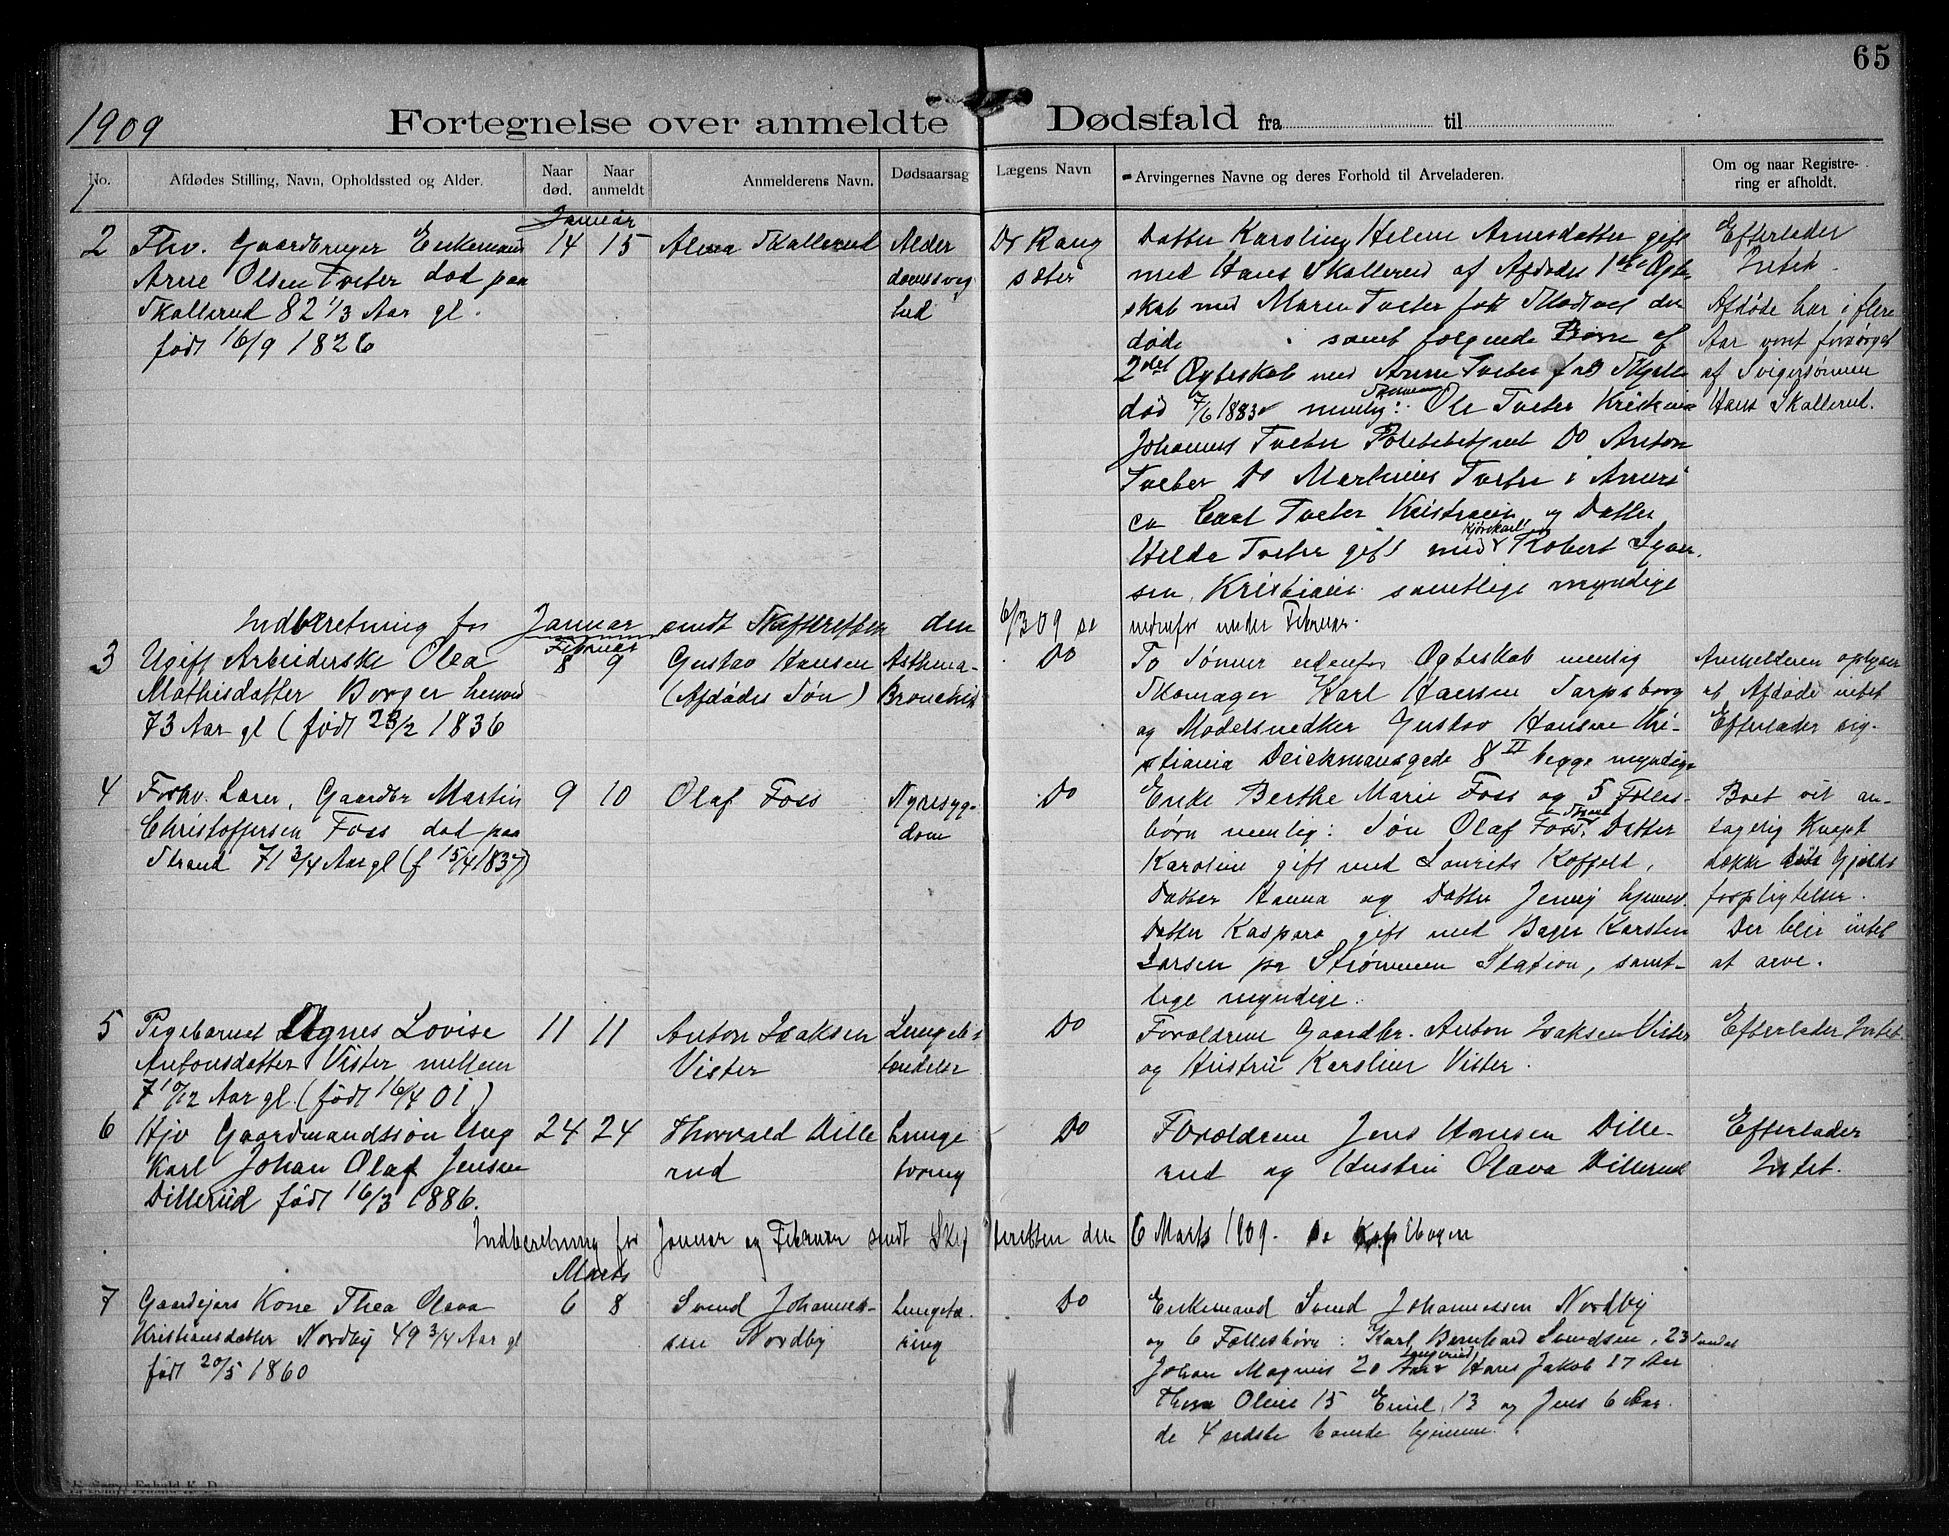 65
1909
Fortegnelse over anmeldte Dødsfald fra til
No. Afdødes Stilling, Navn, Opholdssted og Alder. Naar død. Naar anmeldt Anmelderens Navn. Dødsaarsag Lægens Navn Arvingernes Navne og deres Forhold til Arveladeren. Om og naar Registrering er afholdt.
Januar
2 Fhv. Gaardbruger Enkemand 14 15 Alma Skallerud Alder
Arne Olsen Tveter død paa
Skallerud 82 1/3 Aar gl.
født 16/9 1826
domssvag
hed
Dr Rang
sæter
Datter Karoline Helene Arnesdatter gift
med Hans Skallerud af Afdødes 1ste Ægte
skab med Maren Tveter født den
døde samt følgende Børn af
2det Ægteskab med Anne Tveter
død 7/6 1883 nemlig: Ole Tveter Kristiania
Johannes Tveter Do Anton
Tveter Do Martinius Tveter i Ameri
ca Carl Tveter Kristiania og Datter
Hilda Tveter gift med Kjørekarl Robert Iver
sen, Kristiania samtlige myndige
Efterlader
Intet.
Afdøde har i flere
Aar vært forsørget
af Svigersønnen
Hans Skallerud.
Indberetning for Januar sendt Skifteretten den 6/3 09 se
nedenfor under Februar.
Februar
3 Ugift Arbeiderske Olea 8 9 Gustav Hansen Asthma- Do
Mathisdatter Borger
73 Aar gl (født 23/2 1836
(Afdødes Søn) Bronchit
To Sønner udenfor Ægteskab nemlig
Skomager Karl Hansen Sarpsborg
og Modelsnedker Gustav Hansen Kri-
stiania Deichmansgade 8 II begge myndige
Anmelderen oplyser
at Afdøde intet
Efterlader sig.
4 Forhv. Lærer, Gaardbr Martin 9 10 Olaf Foss Nyresyg- Do
Christoffersen Foss død paa
Strand 71 3/4 Aar gl (f 15/4 1837)
dom
Enke Berthe Marie Foss og 5 Fælles-
børn nemlig: Søn Olaf Foss, Strand Datter
Karoline gift med Laurits Koffeld,
Datter Hanna og Datter Jenny hjemme.
Datter Kaspara gift med Bager Karsten
Larsen pr Strømmen Station, samt-
lige myndige.
Boet vil an-
tagelig knapt
dække sine Gjelds
forpligtelser.
Der blir intet
at arve.
5 Pigebarnet Agnes Lovise 11 11 Anton Isaksen Lungebe- Do
Antonsdatter Vister mellem
7 10/12 Aar gl. (født 16/4 01)
Vister
tændelse
Forældrene Gaardbr. Anton Isaksen Vister
og Hustru Karoline Vister.
Efterlader Intet.
6 Hjv Gaardmandssøn Ung 24 24 Thorvald Dille Lunge Do
Karl Johan Olaf Jensen
Dillerud født 16/3 1886.
rud
tæring
Forældrene Jens Hansen Dille-
rud og Hustru Olava Dillerud
Efterlader
Intet.
Indberetning for Januar og Februar sendt Skifteretten den 6 Marts 1909. se Kopibogen
Marts
7 Gaardejers Kone Thea Olava 6 8 Svend Johannes- Lungetæ- Do
Kristiansdatter Nordby 49 3/4 Aar gl
født 20/5 1860
sen Nordby
ring
Enkemand Svend Johannessen Nordby
og 6 Fællesbørn: Karl Bernhard Svendsen, 23
Johan Magnus 20 Aar Hans Jakob 17 Aar
Thora Oline 15 Emil 13 og Jens 6 Aar.
de 4 sidste boende hjemme.